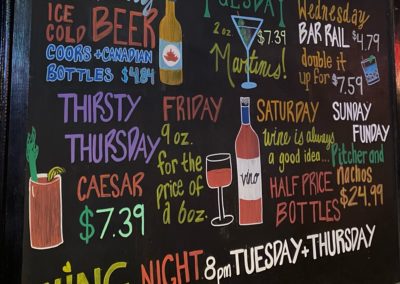 ICE
COLD BEER
COORS + CANADIAN
BOTTLES $4.84
TUESDAY
2oz $7.39
Martinis!
Wednesday
BAR RAIL $4.79
double it
up for $7.59
THIRSTY
THURSDAY
CAESAR
$7.39
FRIDAY
9 oz.
for the
price of
a 6oz.
vino
SATURDAY
wine is always
a good idea...
HALF PRICE
BOTTLES
SUNDAY
FUNDAY
Pitcher and
nachos
$24.99
WING NIGHT 8pm TUESDAY + THURSDAY